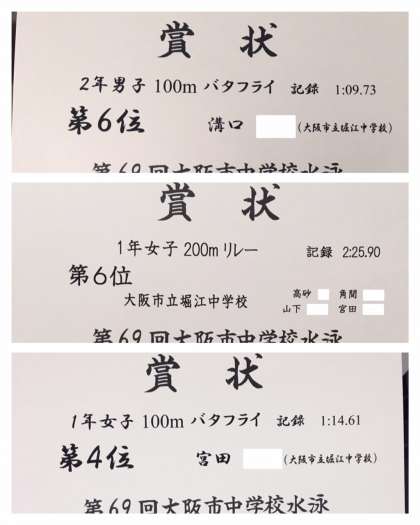 賞 状
2年男子 100m バタフライ 記録 1:09.73
第6位 溝口 (大阪市立堀江中学校)
第69回大阪市中学校水泳
賞 状
1年女子 200m リレー 記録 2:25.90
第6位
大阪市立堀江中学校
高砂 角間
山下 宮田
第69回大阪市中学校水泳
賞 状
1年女子 100m バタフライ 記録 1:14.61
第4位 宮田 (大阪市立堀江中学校)
第69回大阪市中学校水泳